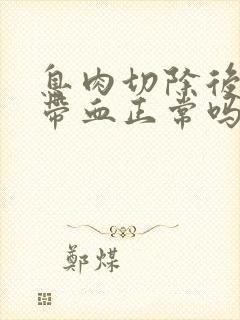 息肉切除後
帶血正常嗎
鄭煤